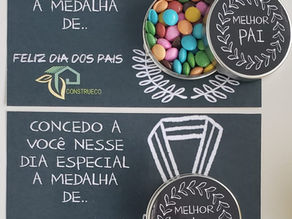 A MEDALHA
DE..
FELIZ DIA DOS PAIS
CONSTRUECO
MELHOR
PAI
CONCEDO A
VOCÊ NESSE
DIA ESPECIAL
A MEDALHA
DE..
MELHOR